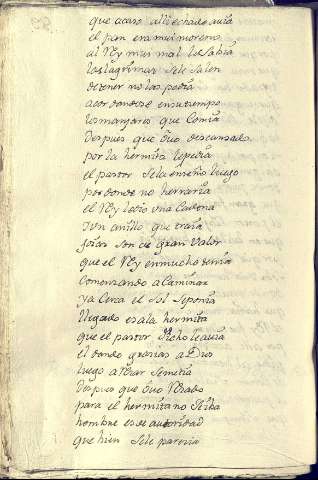 que acaso alli echado avia
el pan era mui moreno
al Rey mui mal le sabia
las lagrimas se le salen
detener no las podia
acordandose en su tiempo
los manjares que comia
despues que huvo descansado
por la hermita le pedia
el pastor se la enseño luego
por donde no herraria
el Rey le dio una cadena
i un anillo que traia
joias son de gran valor
que el Rey en mucho tenia
comensando a caminar
ya cerca el sol se ponia
llegado es a la hermita
que el pastor dicho le avia
el dando grasias a Dios
luego a resar se metia
despues que huvo resado
para el hermitaño se iba
hombre es de autoridad
que bien se le parecia